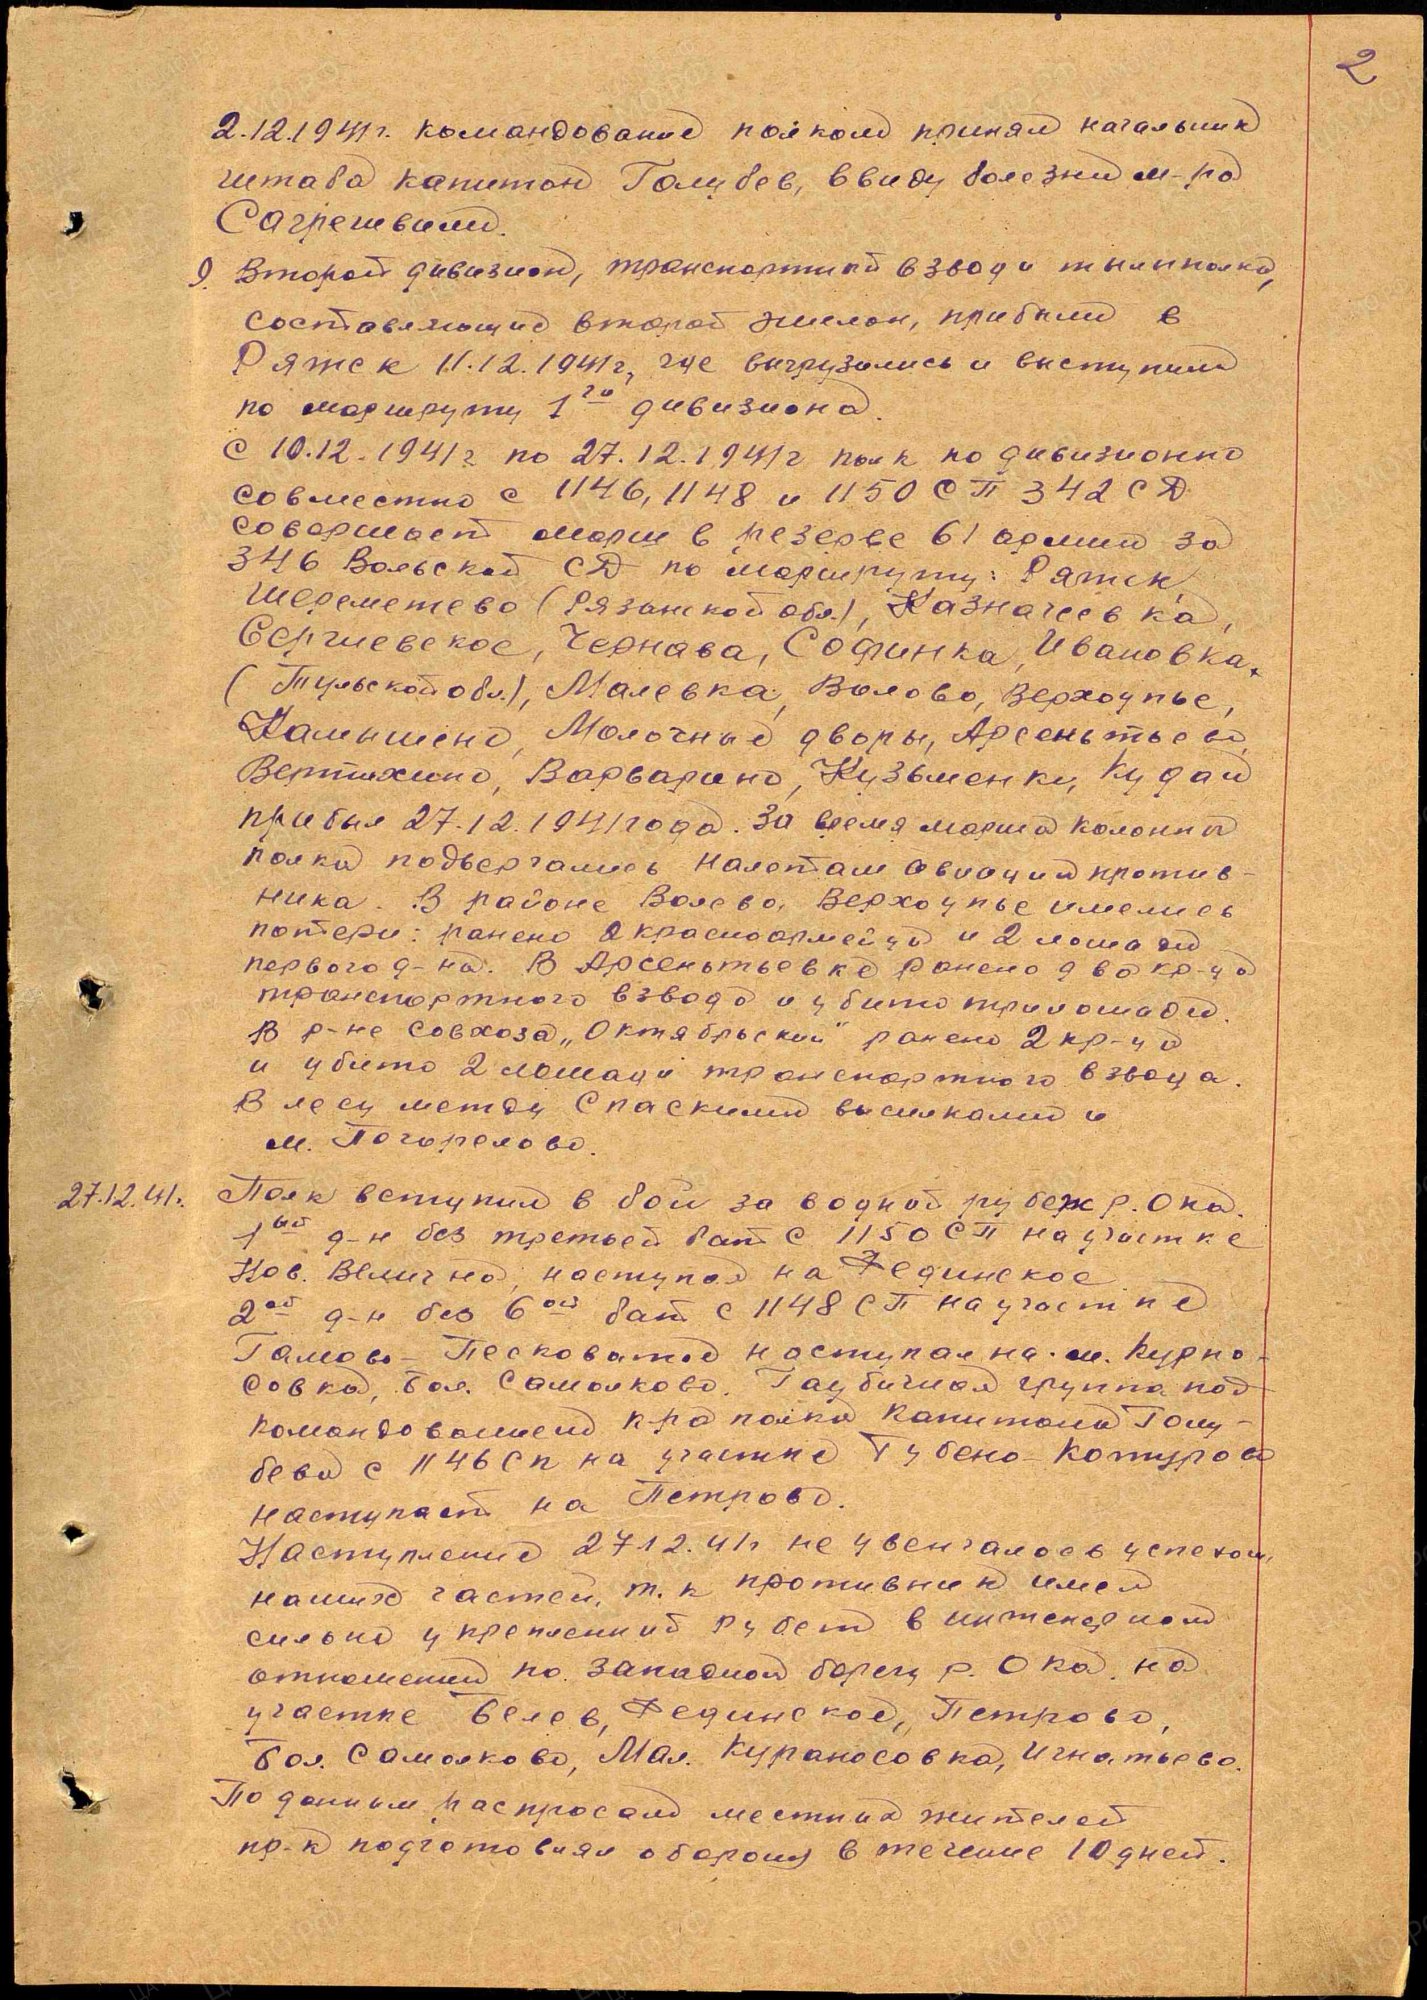 2
2.12.1941г. командование полком принял начальник
штаба капитан Голубев, ввиду болезни м-ра
Сагрешвили.
Второй дивизион, транспортный взвод и тылы полка,
составляющие второй эшелон, прибыли в
Ряжск 11.12.1941г, где выгрузились и выступили
по маршруту 1го дивизиона.
С 10.12.1941г по 27.12.1941г полк подивизионно
совместно с 1146, 1148 и 1150 СП 342 СД
совершает марш в резерве 61 армии за
346 Вольской СД по маршруту: Ряжск,
Шереметево (Рязанской обл.), Казначеевка,
Сергиевское, Чернава, Софинка, Ивановка,
(Тульской обл.), Малевка, Волово, Верхоупье,
Камышено, Молочные дворы, Арсеньтьево,
Вертяхино, Варварино, Кузьменки, Куда и
прибыл 27.12.1941года. За время марша колонны
полка подвергались налетам авиации против-
ника. В районе Волово, Верхоупье имелись
потери: ранено 2 красноармейца и 2 лошади
первого д-на. В Арсеньтьевке ранено два кр-ца
транспортного взвода и убито три лошади.
В р-не совхоза „Октябрьский" ранено 2 кр-ца
и убито 2 лошади транспортного взвода.
В лесу между Спаскими выселками и
м. Погорелово.
27.12.41г. Полк вступил в бой за водный рубеж р. Ока.
1ый д-н без третьей бат с 1150 СП на участке
Нов. Величнa, наступая на Фединское.
2ой д-н без 6ой бат с 1148 СП на участке
Гамово – Песковатое наступая на м. Курно-
совка, Бол. Самолково. Гаубичная группа под
командованием к-ра полка капитана Голу-
бева с 1146 СП на участке Губено – Катурово
наступает на Петрово.
Наступление 27.12.41г не увенчалось успехом
наших частей, т.к противник имел
сильно укрепленный рубеж в инженерном
отношении по западном берегу р. Ока на
участке Белев, Фединское, Петрово,
Бол. Самолково, Мал. Курановсовка, Игнатьево.
По данным распросам местных жителей
пр-к подготовлял оборону в течение 10 дней.